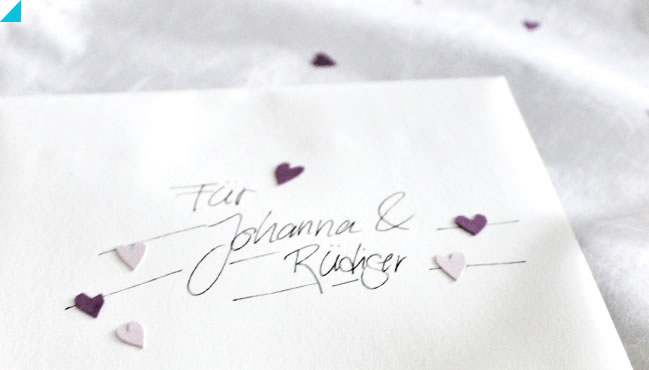 Für
Johanna &
Rüdiger